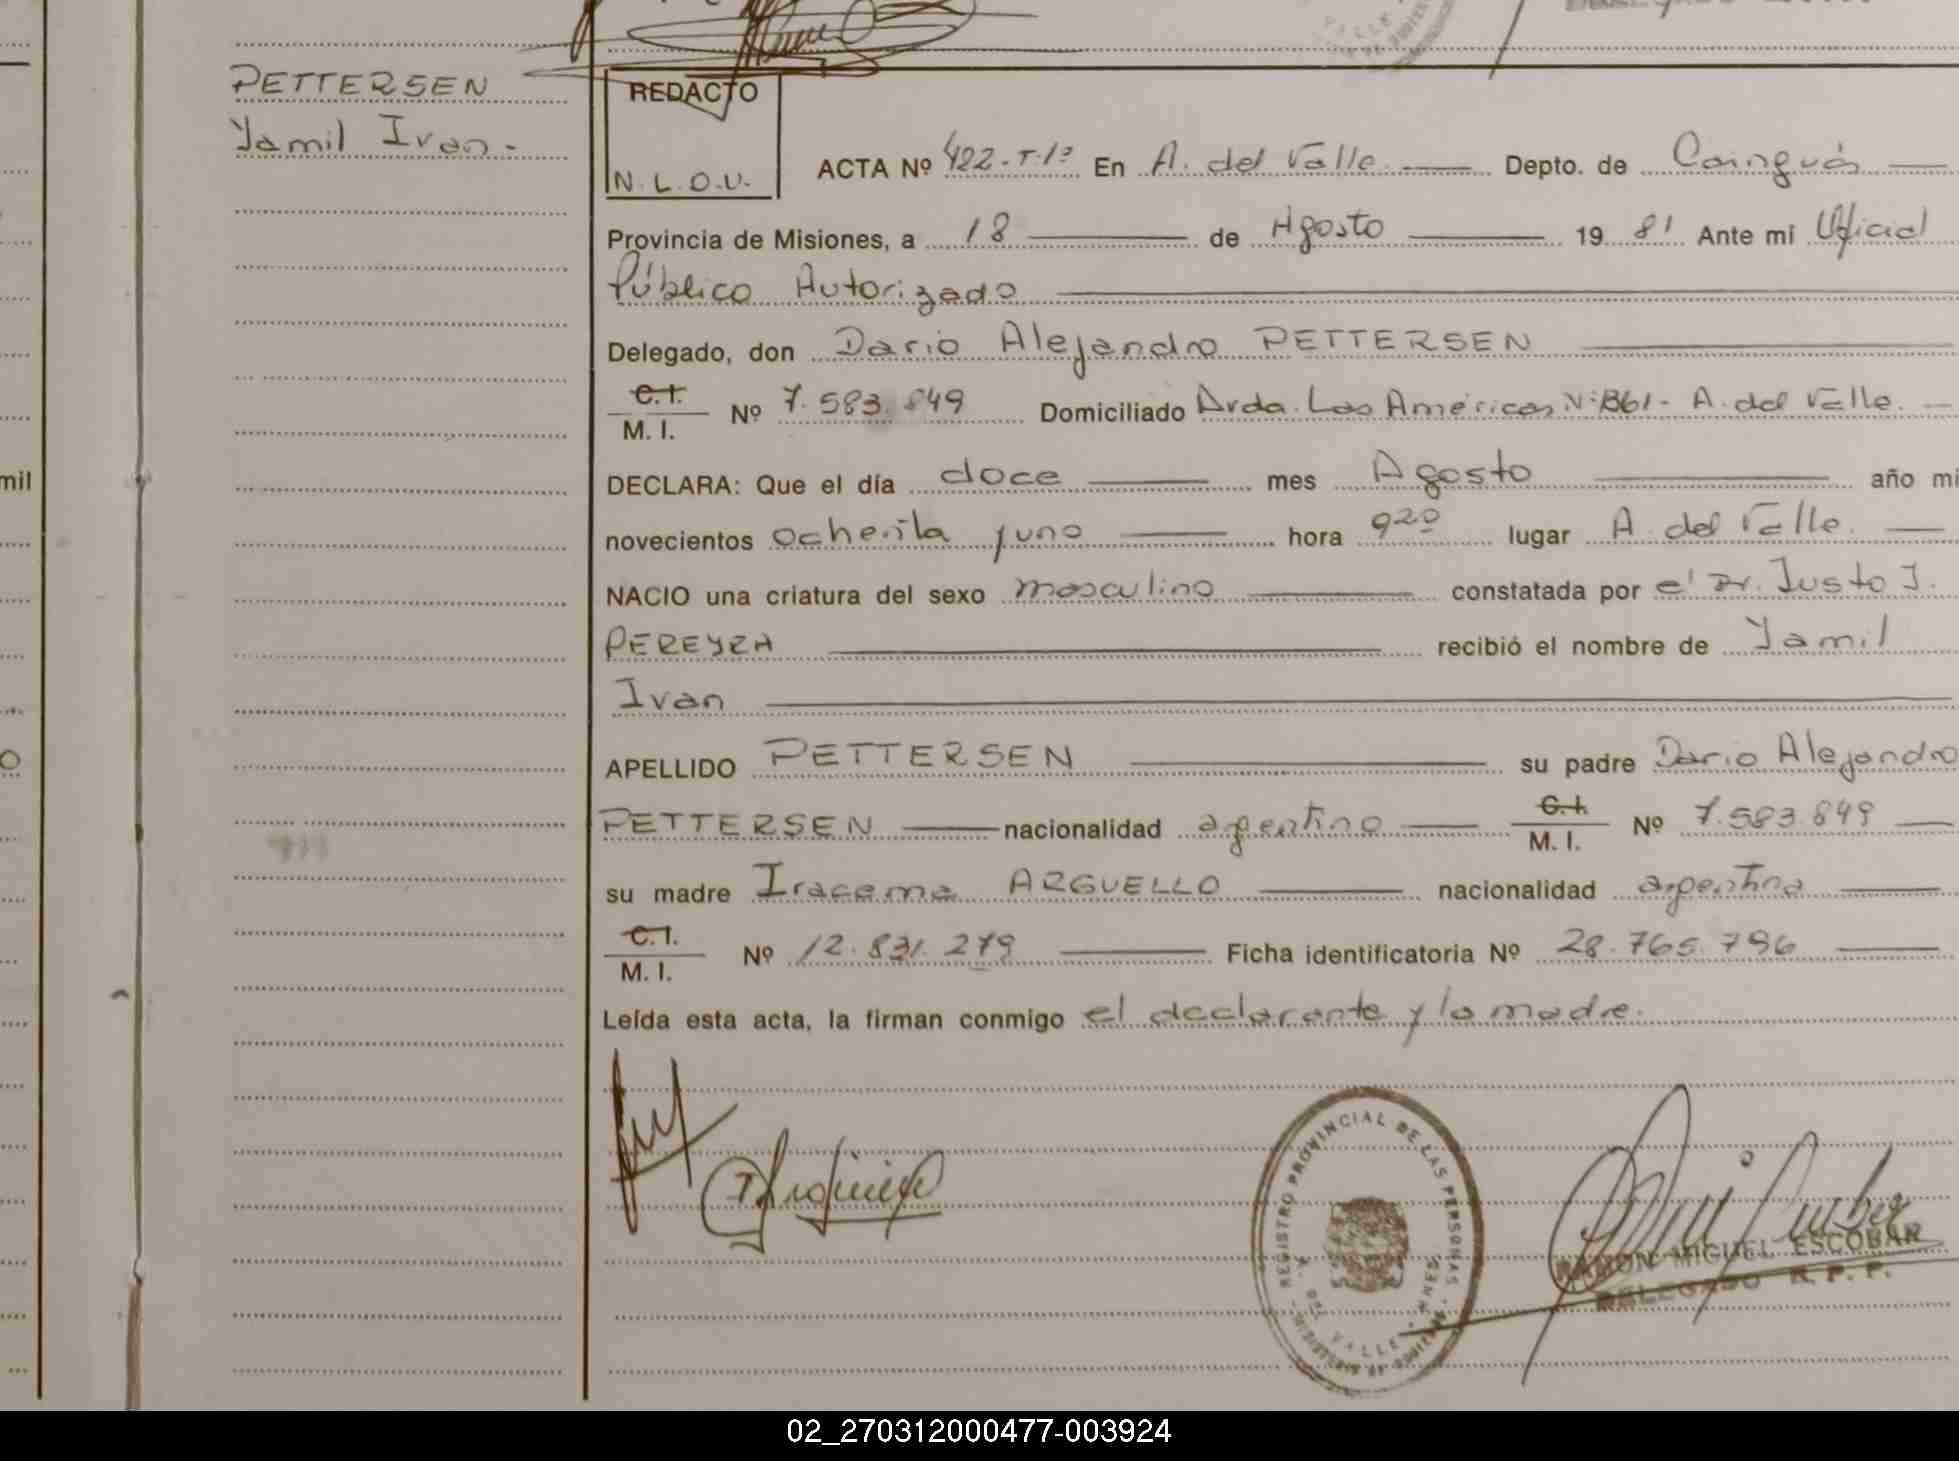 PETTERSEN
Yamil Ivan -
REDACTO
N. L. O. U.
ACTA Nº 422-T-1º En A. del Valle. Depto. de Cainguás
Provincia de Misiones, a 18 de Agosto 19 81 Ante mi Oficial
Público Autorizado
Delegado, don Dario Alejandro PETTERSEN
C.I.
M. I. Nº 7.583.849 Domiciliado Avda. Las Américas Nº 861 - A. del Valle.
mil
DECLARA: Que el día doce mes Agosto año mi
novecientos ochenta y uno hora 9 20 lugar A. del Valle.
NACIO una criatura del sexo masculino constatada por el Dr. Justo J.
PEREYRA recibió el nombre de Yamil
Ivan
APELLIDO PETTERSEN su padre Dario Alejandro
PETTERSEN nacionalidad argentino C.I. M. I. Nº 7.583.849
su madre Iracema ARGUELLO nacionalidad argentina
C.I.
M. I. Nº 12.831.279 Ficha identificatoria Nº 28.765.796
Leída esta acta, la firman conmigo el declarante y la madre.
REGISTRO PROVINCIAL DE LAS PERSONAS
VALLE
RAMON MIGUEL ESCOBAR
DELEGADO R. P. P.
02_270312000477-003924